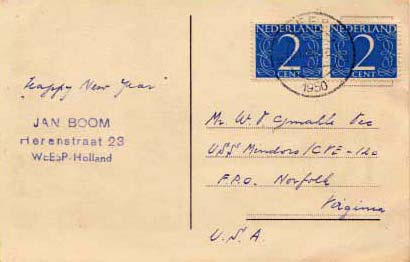 "Happy New Year"
JAN BOOM
Herenstraat 23
WEESP-Holland
NEDERLAND
2
CENT
NEDERLAND
2
CENT
1950
Mr. W
USS Mindoro/CVE-120
F.P.O. Norfolk
Virginia
U.S.A.